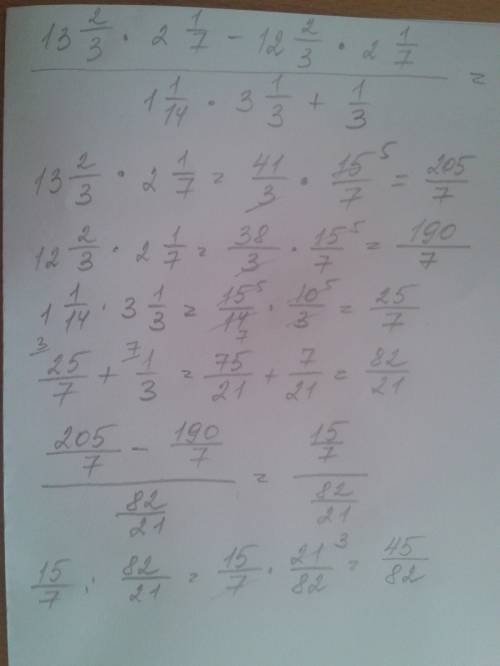 13 2/3 · 2 1/7 - 12 2/3 · 2 1/7
1 1/14 · 3 1/3 + 1/3 =
13 2/3 · 2 1/7 = 41/3 · 15/7 5 = 205/7
12 2/3 · 2 1/7 = 38/3 · 15/7 5 = 190/7
1 1/14 · 3 1/3 = 15/14 5 7 · 10/3 5 = 25/7
3 25/7 + 7 1/3 = 75/21 + 7/21 = 82/21
205/7 - 190/7 = 15/7
82/21 82/21
15/7 : 82/21 = 15/7 · 21/82 3 = 45/82